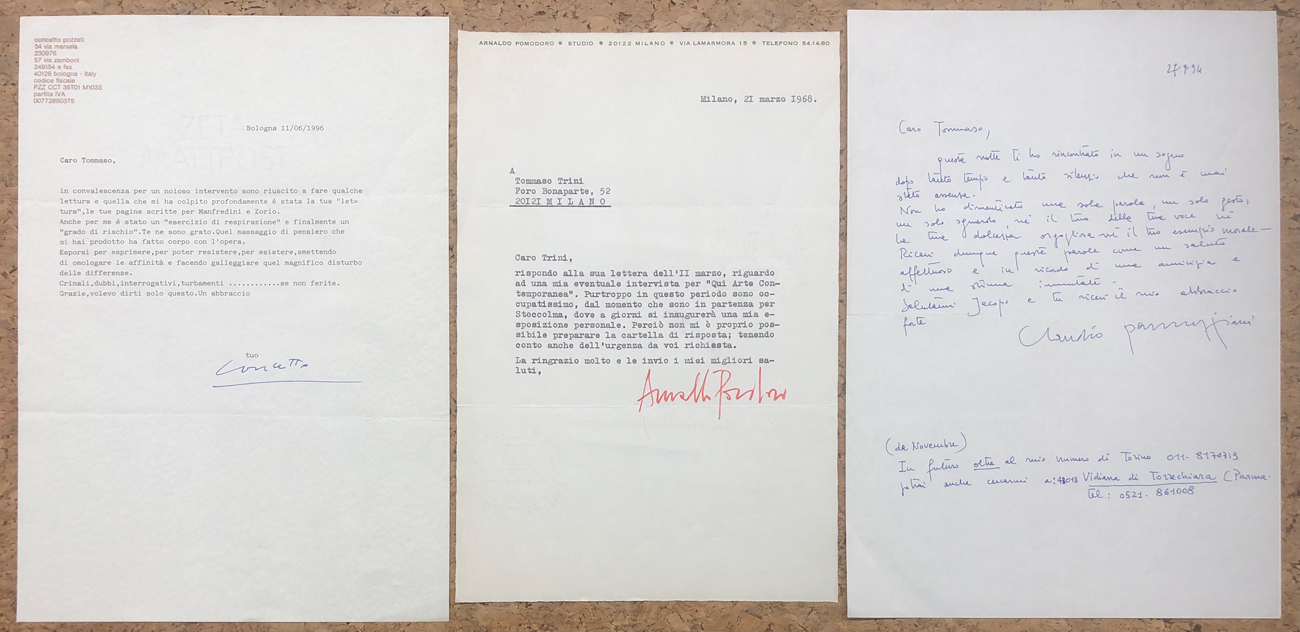 concetto pozzati
34 via marsala
230976
57 via zamboni
249154 e fax
40126 bologna - italy
codice fiscale
PZZ CCT 35T01 M103S
partita IVA
00773860375
Bologna 11/06/1996
Caro Tommaso,
in convalescenza per un noioso intervento sono riuscito a fare qualche
lettura e quella che mi ha colpito profondamente é stata la tua "let=
tura",le tue pagine scritte per Manfredini e Zorio.
Anche per me é stato un "esercizio di respirazione" e finalmente un
"grado di rischio".Te ne sono grato.Quel massaggio di pensiero che
mi hai prodotto ha fatto corpo con l'opera.
Esporsi per esprimere,per poter resistere,per esistere,smettendo
di omologare le affinità e facendo galleggiare quel magnifico disturbo
delle differenze.
Crinali,dubbi,interrogativi,turbamenti ............se non ferite.
Grazie,volevo dirti solo questo.Un abbraccio
tuo
Concetto
ARNALDO POMODORO * STUDIO * 20122 MILANO * VIA LAMARMORA 15 * TELEFONO 54.14.60
Milano, 2I marzo I968.
A
Tommaso Trini
Foro Bonaparte, 52
20I2I M I L A N O
Caro Trini,
rispondo alla sua lettera dell'II marzo, riguardo
ad una mia eventuale intervista per "Qui Arte Con-
temporanea". Purtroppo in questo periodo sono oc-
cupatissimo, dal momento che sono in partenza per
Stoccolma, dove a giorni si inaugurerà una mia e-
sposizione personale. Perciò non mi è proprio pos-
sibile preparare la cartella di risposta; tenendo
conto anche dell'urgenza da voi richiesta.
La ringrazio molto e le invio i miei migliori sa-
luti,
Arnaldo Pomodoro
27 9 94
Caro Tommaso,
questa notte ti ho rincontrato in un sogno
dopo tanto tempo e tanto silenzio che non è mai
stato assenza.
Non ho dimenticato una sola parola, un solo gesto,
un solo sguardo nè il tono della tua voce nè
la tua dolcezza orgogliosa nè il tuo esempio morale—
Ricevi dunque queste parole come un saluto
affettuoso e in ricordo di una amicizia e
di una stima immutate.
Salutami Jacopo e tu ricevi il mio abbraccio
forte
Claudio Parmiggiani
(da Novembre)
In futuro oltre al mio numero di Torino 011-8170713
potrai anche cercarmi a: 43013 Vidiana di Torrechiara (Parma.
Tel: 0521-861008